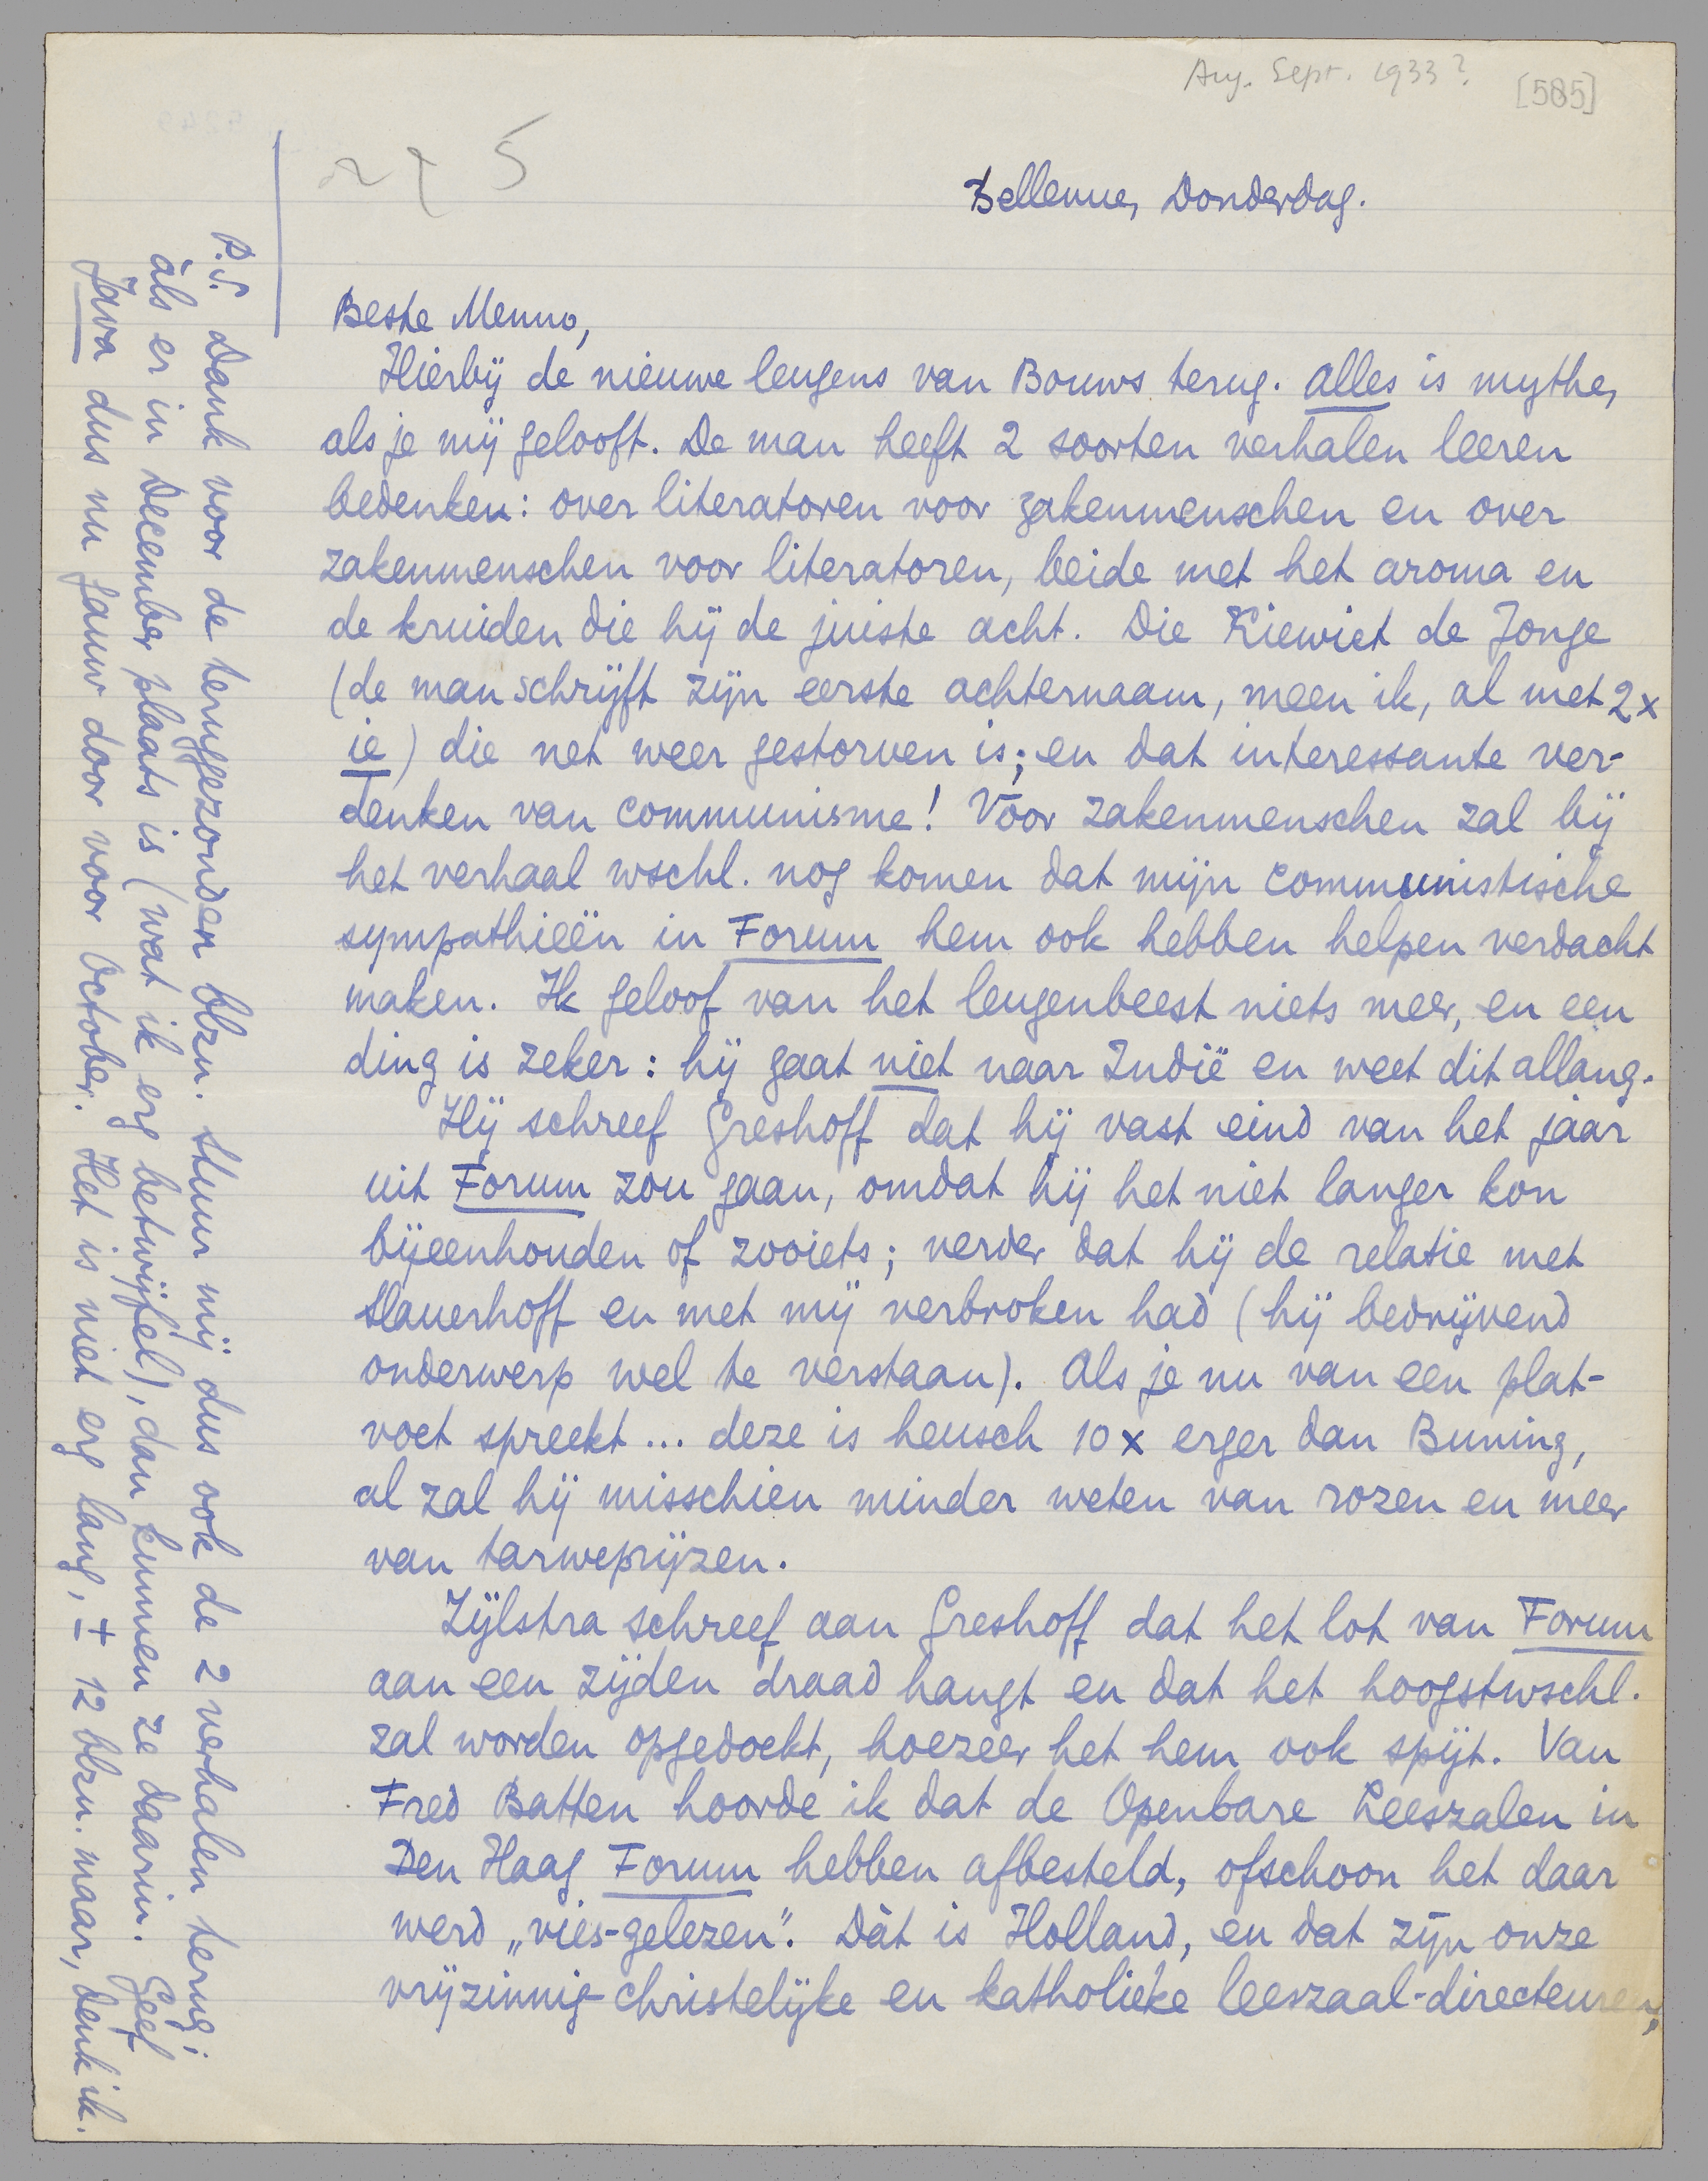 Aug. Sept. 1933?
[585]
5
Bellevue, Donderdag.
Beste Menno,
Hierbij de nieuwe leugens van Bouws terug. Alles is mythe,
als je mij gelooft. De man heeft 2 soorten verhalen leeren
bedenken: over literatoren voor zakenmenschen en over
zakenmenschen voor literatoren, beide met het aroma en
de kruiden die hij de juiste acht. Die Kiewiet de Jonge
(de man schrijft zijn eerste achternaam, meen ik, al met 2x
ie) die net weer gestorven is; en dat interessante ver-
denken van communisme! Voor zakenmenschen zal bij
het verhaal wschl. nog komen dat mijn communistische
sympathieën in Forum hem ook hebben helpen verdacht
maken. Ik geloof van het leugenbeest niets meer, en een
ding is zeker: hij gaat niet naar Indië en weet dit allang.
Hij schreef Greshoff dat hij vast eind van het jaar
uit Forum zou gaan, omdat hij het niet langer kon
bijeenhouden of zooiets; verder dat hij de relatie met
Slauerhoff en met mij verbroken had (hij bedrijvend
onderwerp wel te verstaan). Als je nu van een plat-
voet spreekt... deze is heusch 10x erger dan Buning,
al zal hij misschien minder weten van rozen en meer
van tarweprijzen.
Zijlstra schreef aan Greshoff dat het lot van Forum
aan een zijden draad hangt en dat het hoogstwschl.
zal worden opgedoekt, hoezeer het hem ook spijt. Van
Fred Batten hoorde ik dat de Openbare Leeszalen in
Den Haag Forum hebben afbesteld, ofschoon het daar
werd „vies-gelezen". Dàt is Holland, en dat zijn onze
vrijzinnig-christelijke en katholieke leeszaal-directeuren,
P.S. Dank voor de teruggezonden blzn. Stuur mij dus ook de 2 verhalen terug;
àls er in December plaats is (wat ik erg betwijfel), dan kunnen ze daarin. Geef
Java dus nu gauw door voor October. Het is niet erg lang, ± 12 blzn. maar, denk ik.